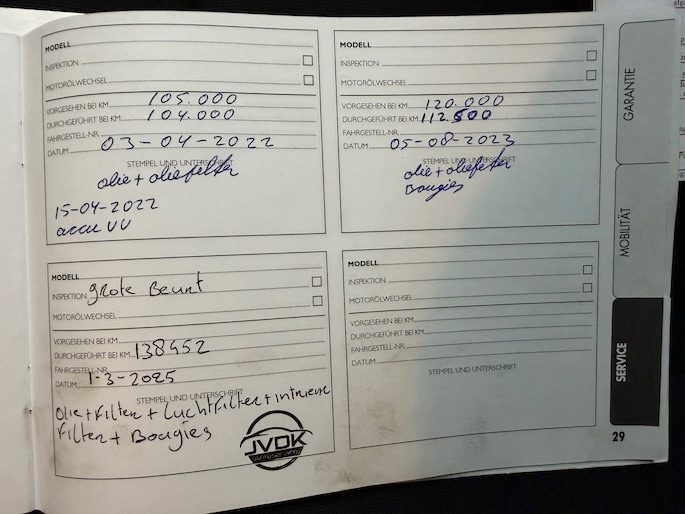 MODELL
INSPEKTION
MOTORÖLWECHSEL
VORGESEHEN BEI KM 105.000
DURCHGEFÜHRT BEI KM 104.000
FAHRGESTELL-NR.
DATUM 03-04-2022
STEMPEL UND UNTERSCHRIFT
olie + oliefilter
15-04-2022
accu VV
MODELL
INSPEKTION
MOTORÖLWECHSEL
VORGESEHEN BEI KM 120.000
DURCHGEFÜHRT BEI KM 112.500
FAHRGESTELL-NR.
DATUM 05-08-2023
STEMPEL UND UNTERSCHRIFT
olie + oliefilter
Bougies
MODELL
INSPEKTION grote Beurt
MOTORÖLWECHSEL
VORGESEHEN BEI KM
DURCHGEFÜHRT BEI KM 138452
FAHRGESTELL-NR.
DATUM 1-3-2025
STEMPEL UND UNTERSCHRIFT
Olie + Filter + Luchtfilter + interieur
Filter + Bougies
JVDK
MODELL
INSPEKTION
MOTORÖLWECHSEL
VORGESEHEN BEI KM
DURCHGEFÜHRT BEI KM
FAHRGESTELL-NR.
DATUM
STEMPEL UND UNTERSCHRIFT
GARANTIE
MOBILITÄT
SERVICE
29